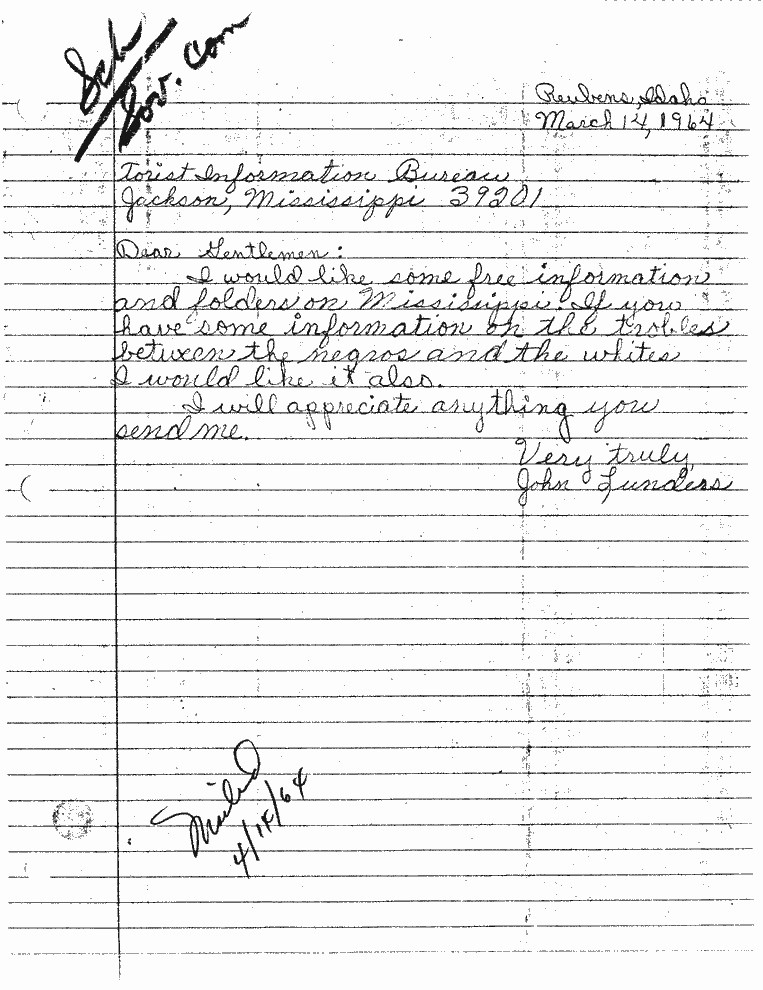 Sch
Sov. Com
Reubens, Idaho
March 14, 1964
Torist Information Bureau
Jackson, Mississippi 39201
Dear Gentlemen:
I would like some free information
and folders on Mississippi. If you
have some information on the trobles
between the negros and the whites
I would like it also.
I will appreciate anything you
send me.
Very truly,
John Lunders
Mailed
4/14/64